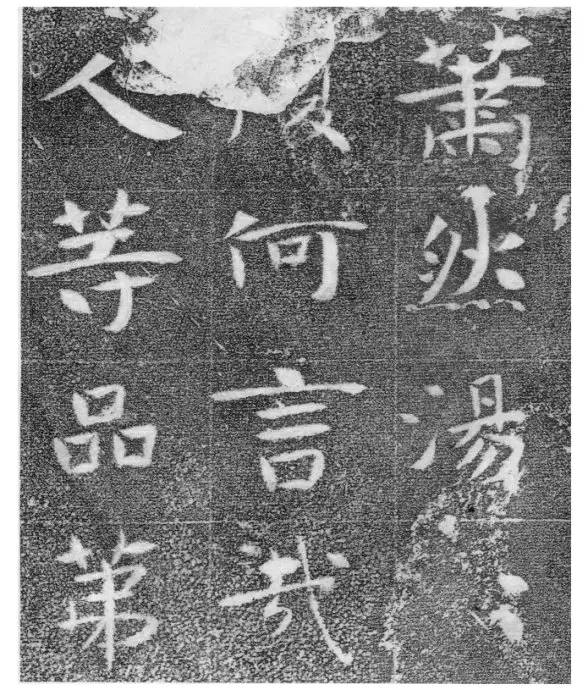 蕭然湯
復何言哉
人等品第